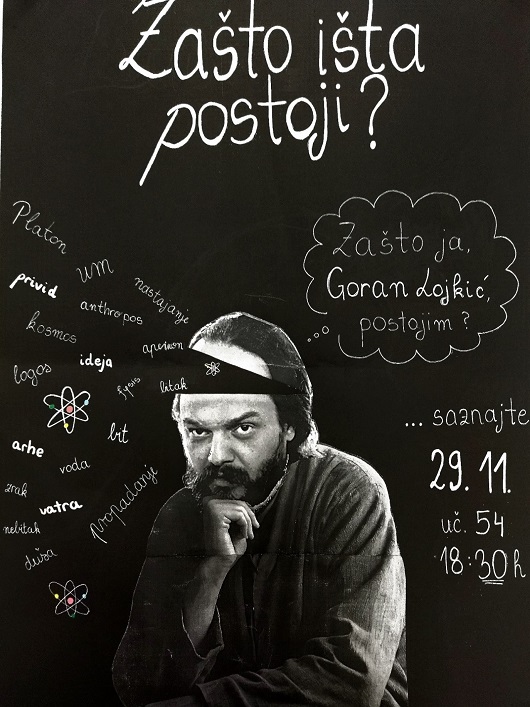 Zašto išta
postoji?
Platon
um
privid
nastajanje
anthropos
kosmos
apeiron
ideja
logos
fysis
bitak
bit
arhe
voda
zrak
vatra
propadanje
nebitak
duša
Zašto ja,
Goran Lojkić,
postojim?
... saznajte
29. 11.
uč. 54
18:30h